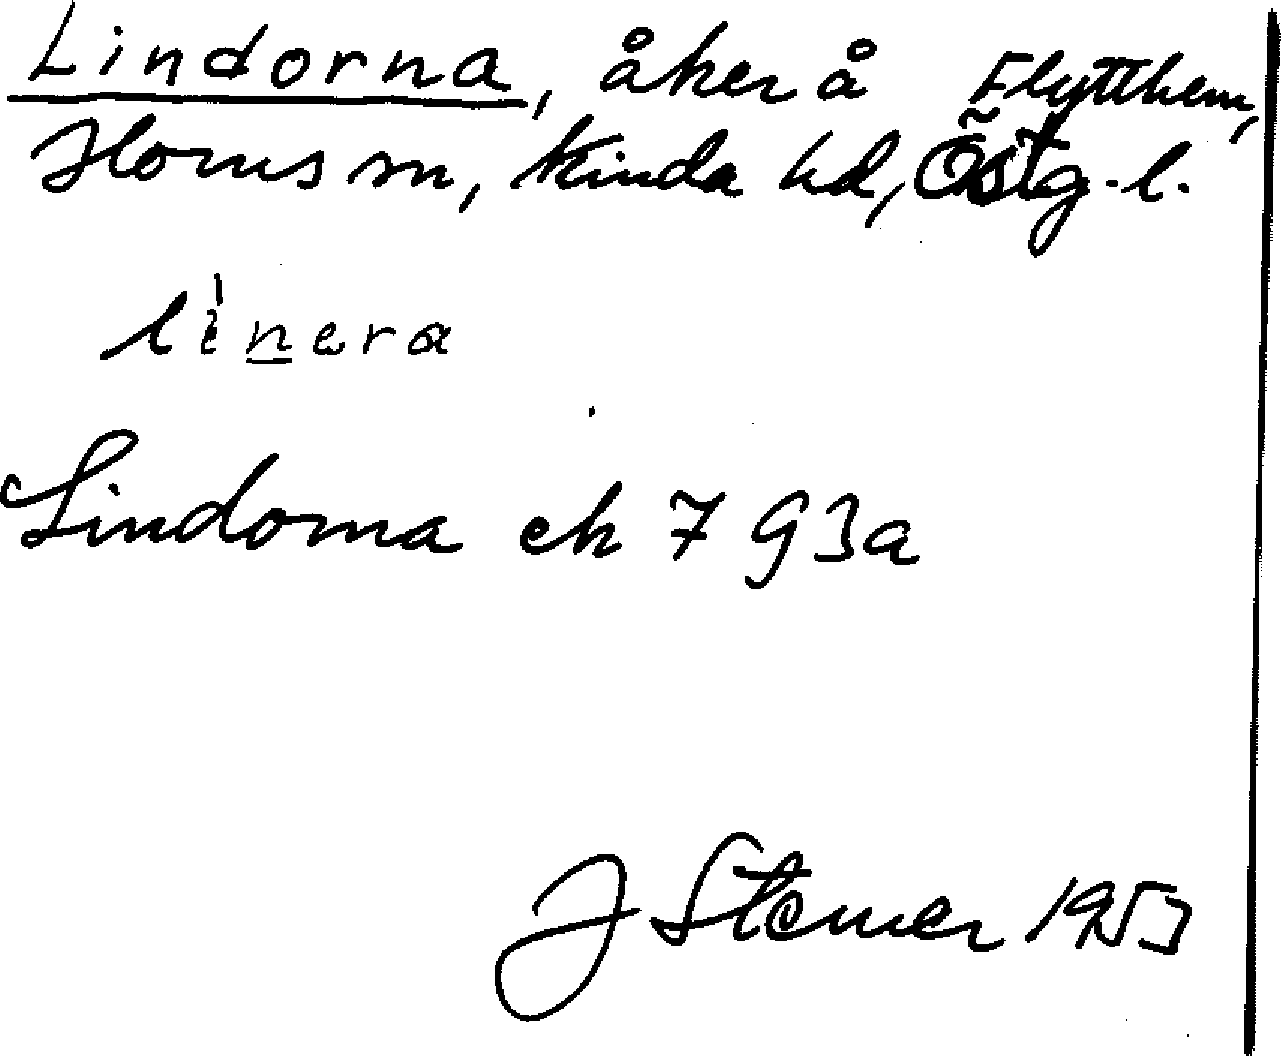 Lindorna, åker å Flytthem,
Horns sn, Kinda hd, Östg. l.
linera
Lindorna ek 7 G3a
J Stener 1953